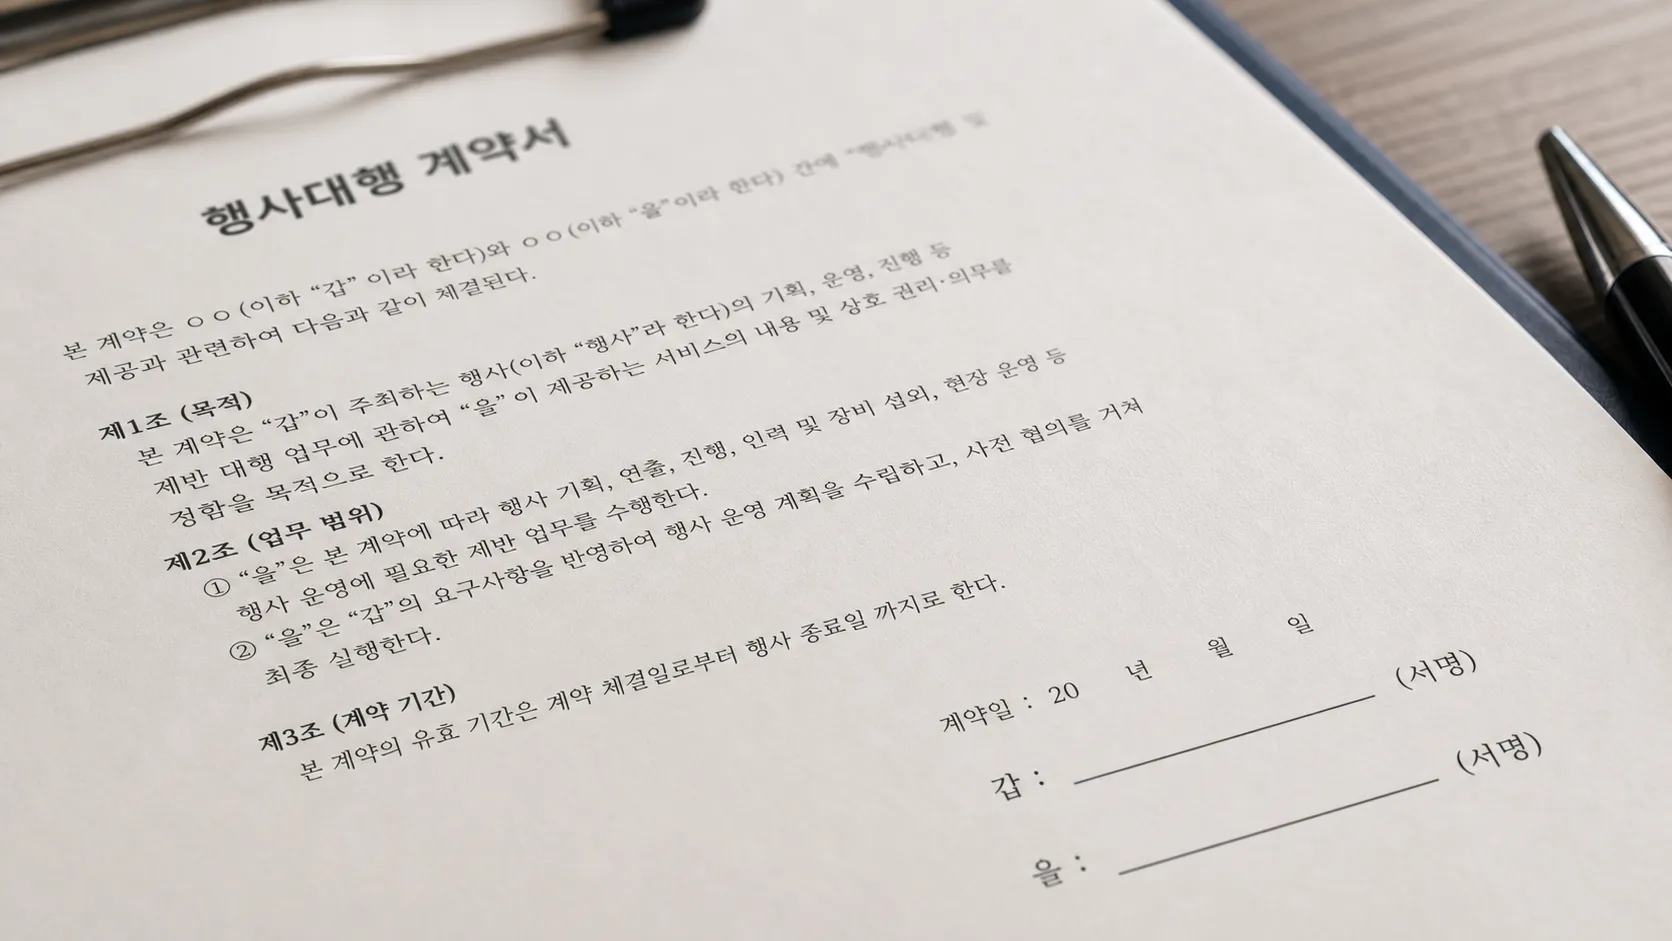 행사대행 계약서
본 계약은 ○○(이하 “갑” 이라 한다)와 ○○(이하 “을”이라 한다) 간에 및
제공과 관련하여 다음과 같이 체결된다.
제1조 (목적)
본 계약은 “갑”이 주최하는 행사(이하 “행사”라 한다)의 기획, 운영, 진행 등
제반 대행 업무에 관하여 “을” 이 제공하는 서비스의 내용 및 상호 권리·의무를
정함을 목적으로 한다.
제2조 (업무 범위)
① “을”은 본 계약에 따라 행사 기획, 연출, 진행, 인력 및 장비 섭외, 현장 운영 등
행사 운영에 필요한 제반 업무를 수행한다.
② “을”은 “갑”의 요구사항을 반영하여 행사 운영 계획을 수립하고, 사전 협의를 거쳐
최종 실행한다.
제3조 (계약 기간)
본 계약의 유효 기간은 계약 체결일로부터 행사 종료일 까지로 한다.
계약일 : 20 년 월 일
갑 : (서명)
을 : (서명)